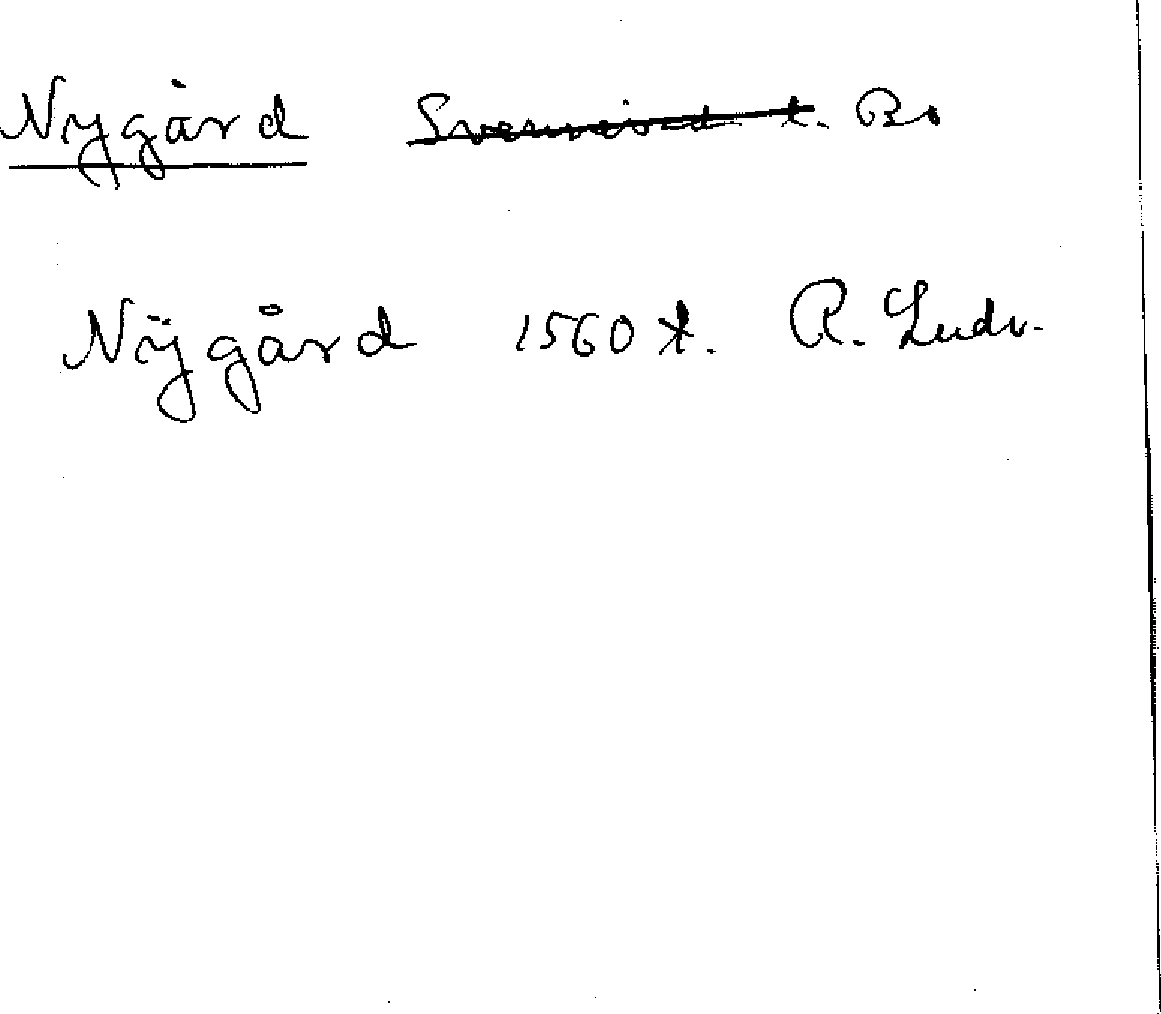 Nygård t. Bo
Nÿgård 1560 t. R. Ludv.